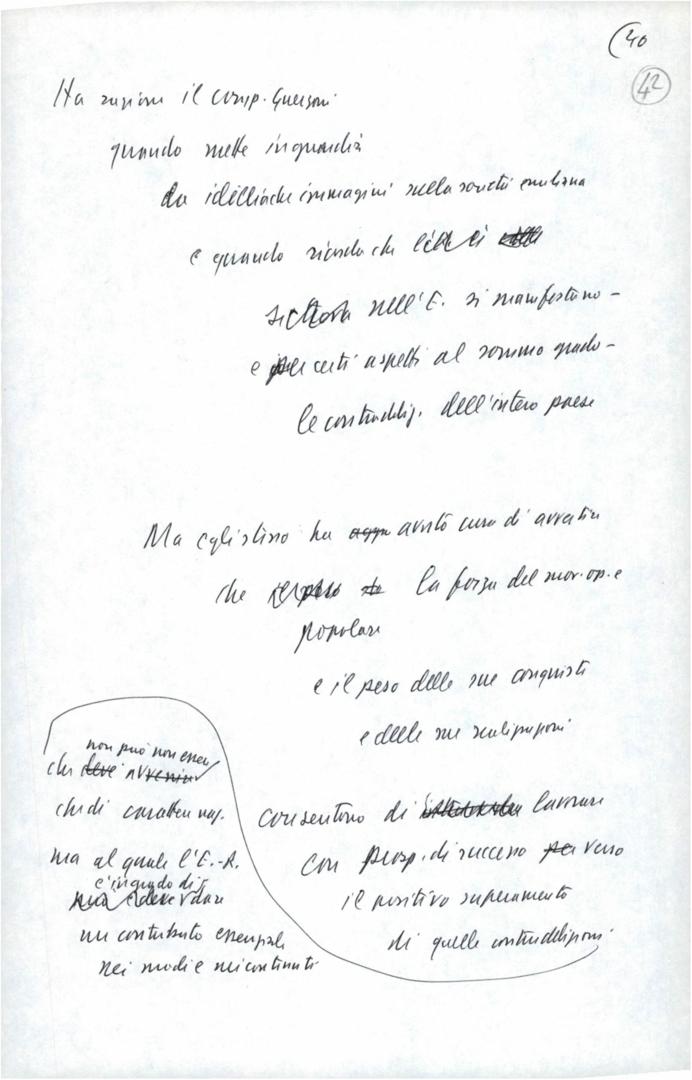 (40
42
Ha ragione il comp. Guerzoni
quando mette in guardia
da idilliache immagini sulla società emiliana
e quando ricorda che
nell'E. si manifestano -
e per certi aspetti al sommo grado -
le contraddiz. dell'intero paese
Ma egli stesso ha avuto cura di avvertire
che la forza del mov. op. e
popolare
e il peso delle sue conquiste
e delle sue realizzazioni
consentono di lavorare
con prosp. di successo verso
il positivo superamento
di quelle contraddizioni
non può non essere
che deve avvenire
che di carattere naz.
ma al quale l'E.-R.
è in grado di
dare
un contributo essenziale
nei modi e nei contenuti